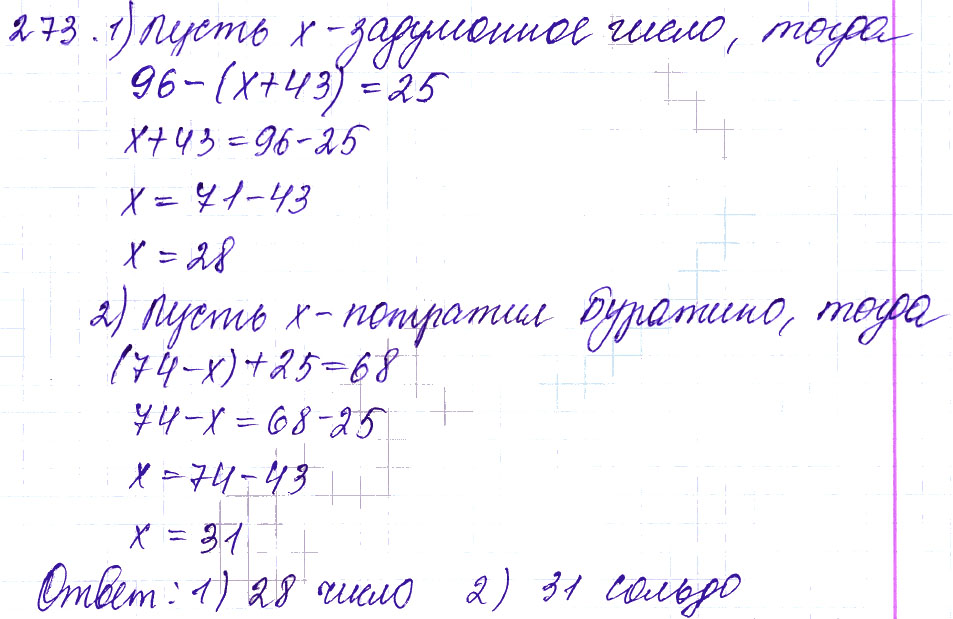 273. 1) Пусть x - задуманное число, тогда
96 - (x + 43) = 25
x + 43 = 96 - 25
x = 71 - 43
x = 28
2) Пусть x - потратил Буратино, тогда
(74 - x) + 25 = 68
74 - x = 68 - 25
x = 74 - 43
x = 31
Ответ: 1) 28 число 2) 31 сольдо